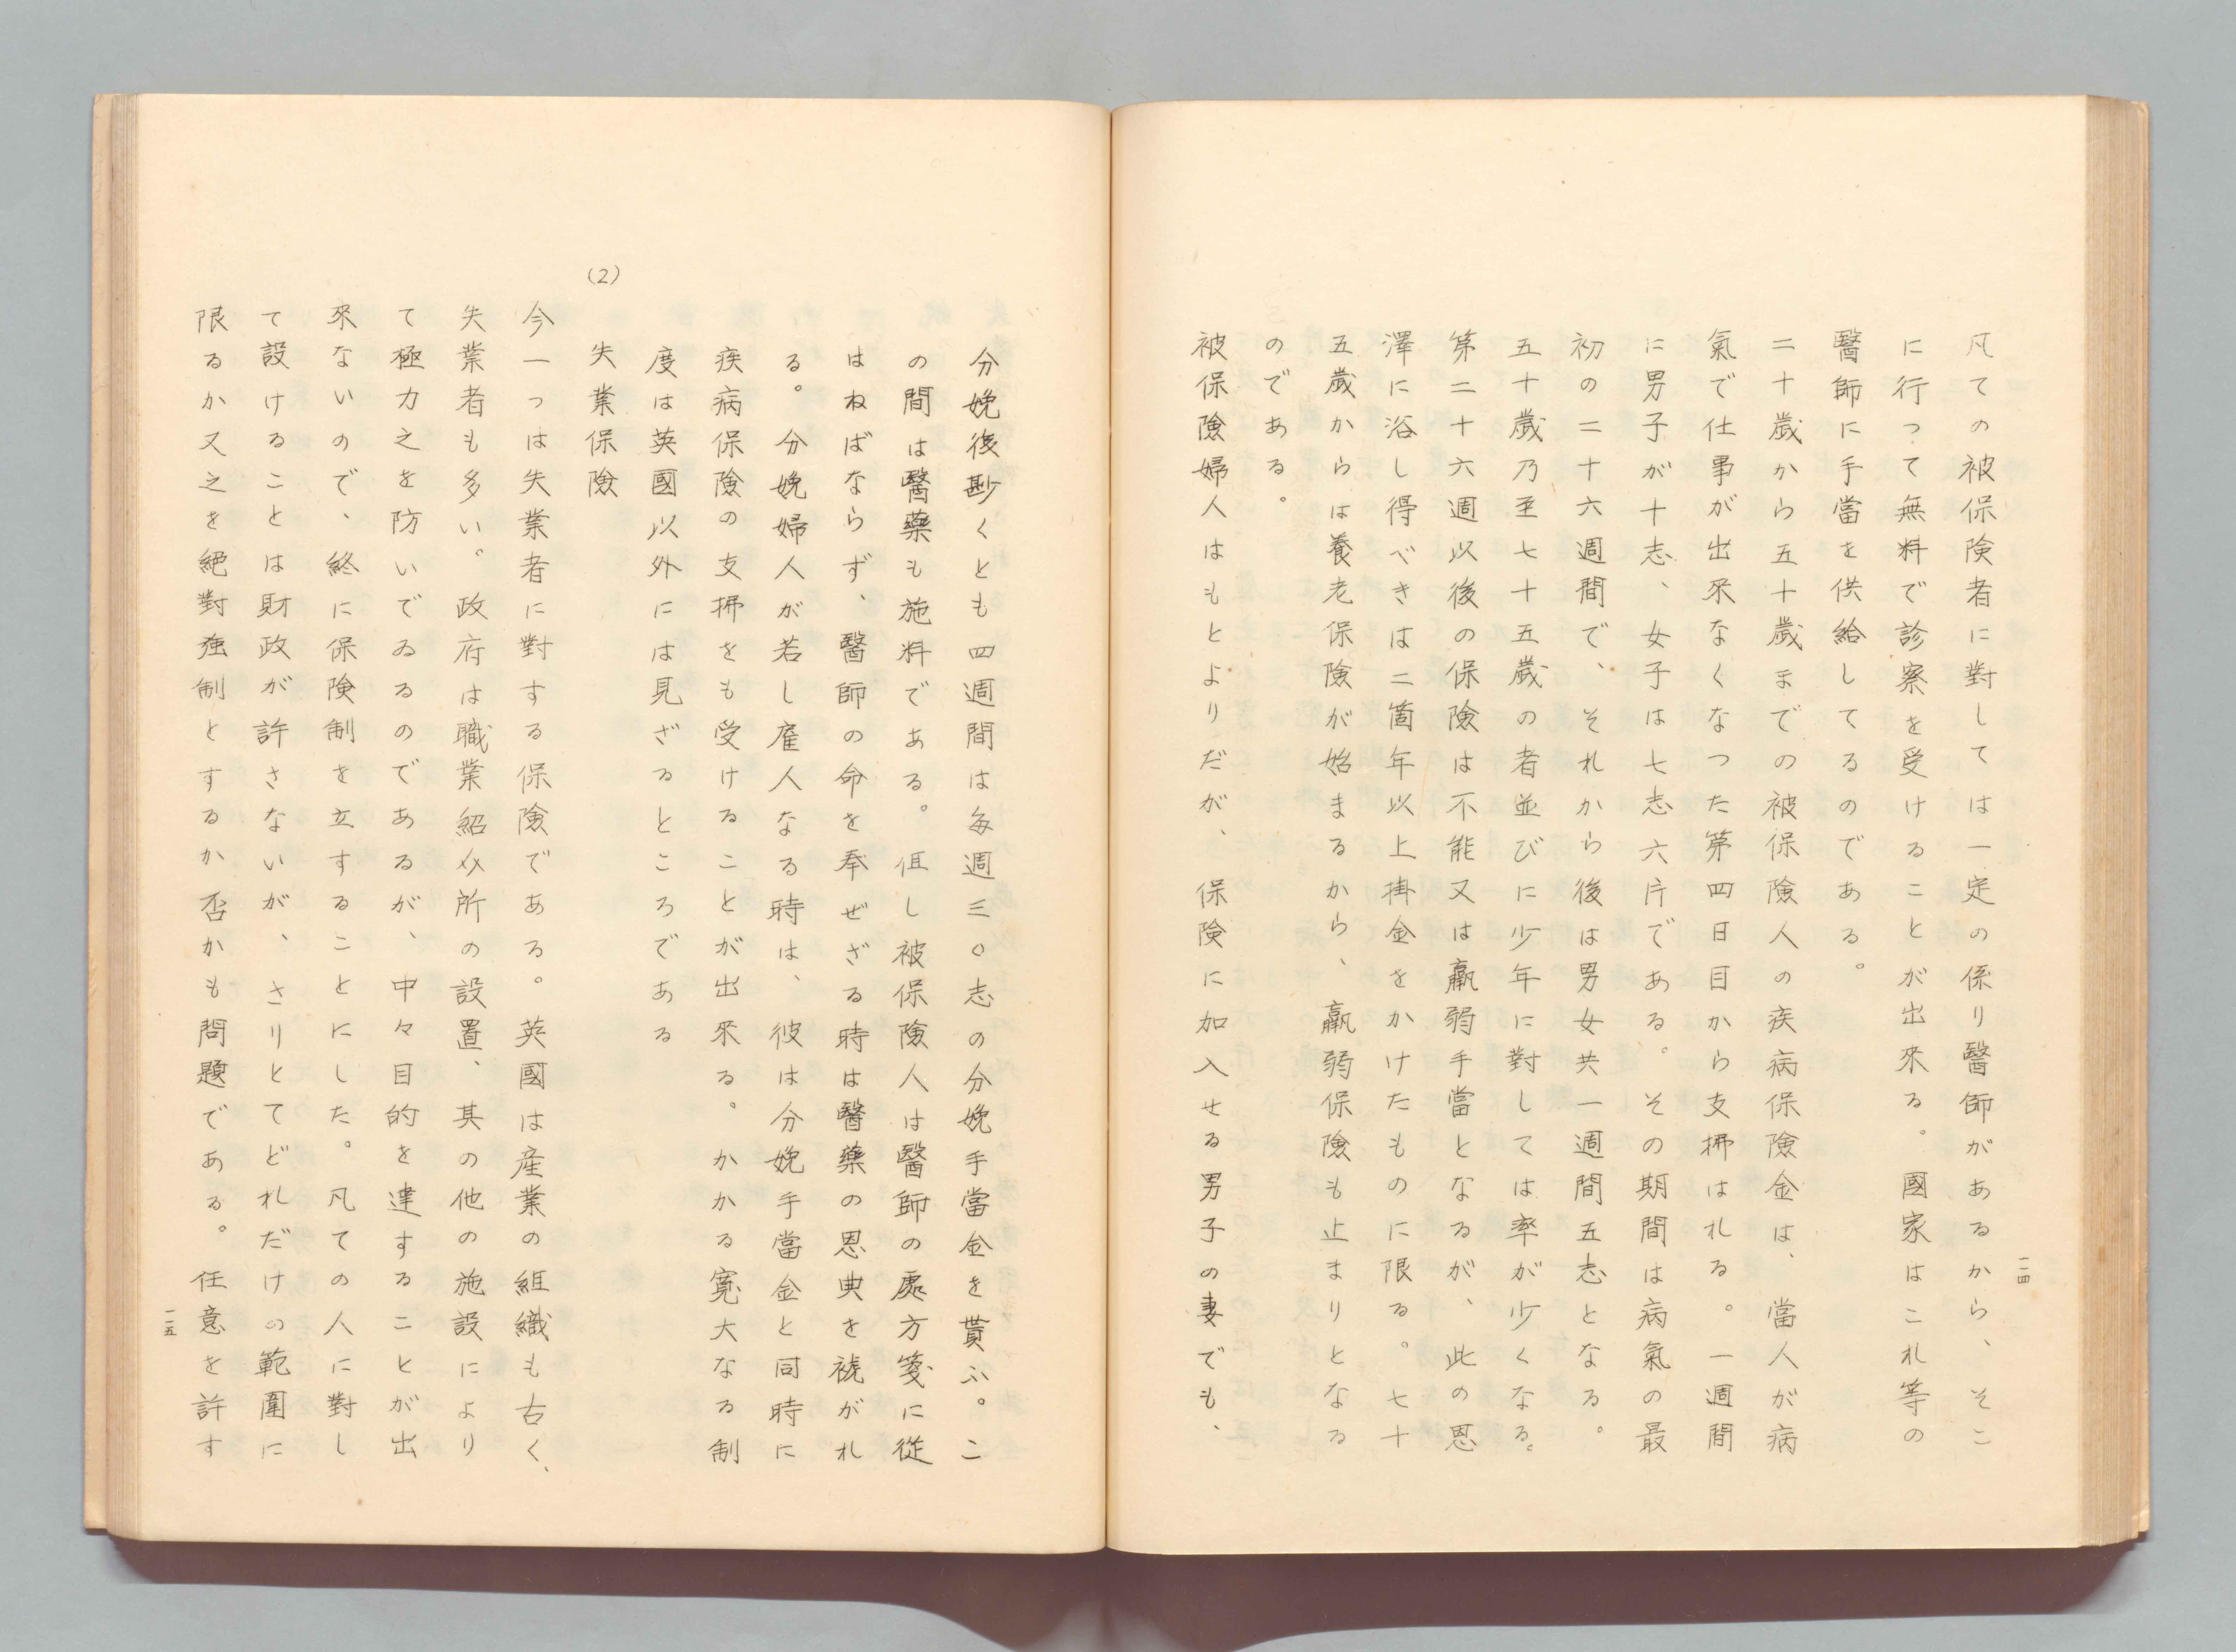 凡ての被保険者に對しては一定の係り醫師があるから、そこ
に行って無料で診察を受けることが出來る。國家はこれ等の
醫師に手當を供給してるのである。
二十歲から五十歲までの被保險人の疾病保險金は、當人が病
氣で仕事が出來なくなつた第四日目から支拂はれる。一週間
に男子が十志、女子は七志六片である。その期間は病氣の最
初の二十六週間で、それから後は男女共一週間五志となる。
五十歲乃至七十五歲の者並びに少年に對しては率が少くなる。
第二十六週以後の保險は不能又は羸弱手當となるが、此の恩
澤に浴し得べきは二箇年以上掛金をかけたものに限る。七十
五歲からは養老保險が始まるから、羸弱保險も止まりとなる
のである。
被保險婦人はもとよりだが、保険に加入せる男子の妻でも、
一一四
分娩後尠くとも四週間は每週三〇志の分娩手當金を貰ふ。こ
の間は醫藥も施料である。但し被保險人は醫師の處方箋に從
はねばならず、醫師の命を奉ぜざる時は醫藥の恩典を褫がれ
る。分娩婦人が若し雇人なる時は、彼は分娩手當金と同時に
疾病保險の支拂をも受けることが出來る。かかる寬大なる制
度は英國以外には見ざるところである
(2)
失業保險
今一つは失業者に對する保險である。英國は産業の組織も古く、
失業者も多い。政府は職業紹介所の設置、其の他の施設により
て極力之を防いでゐるのであるが、中々目的を達することが出
來ないので、終に保険制を立することにした。凡ての人に對し
て設けることは財政が許さないが、さりとてどれだけの範圍に
限るか又之を絕對強制とするか否かも問題である。任意を許す
一一五